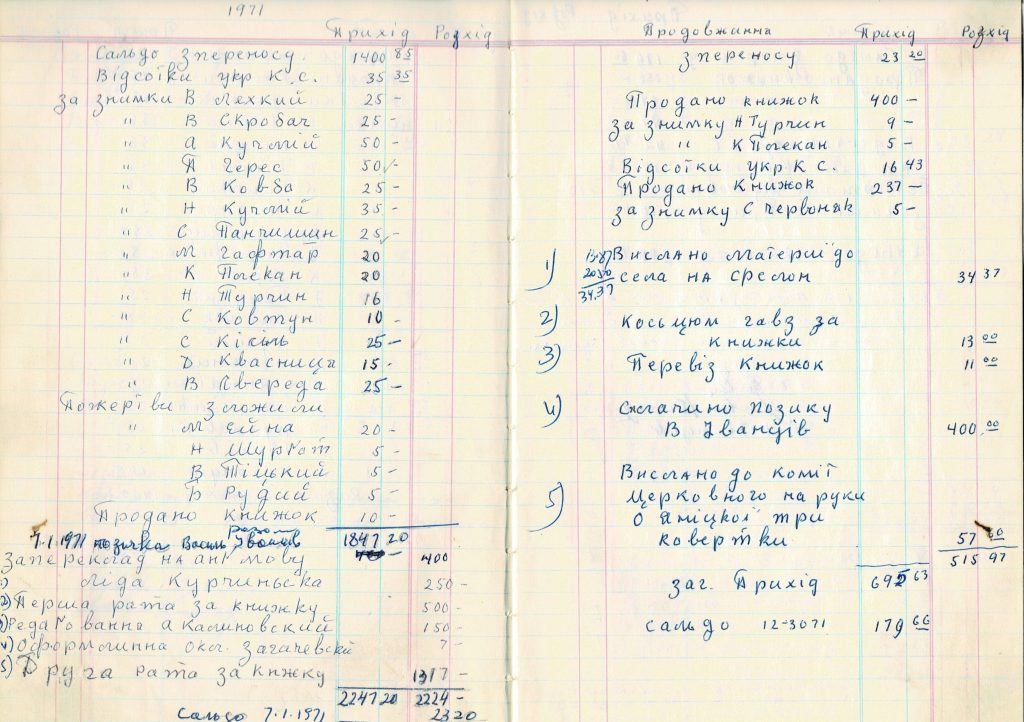 1971
Прихід Розхід
Сальдо з переносу. 1400 85
Відсотки укр К. С. 35 35
за знимки В Лехкий 25 –
" В Скробач 25 –
" А Кучмій 50 –
" П Герес 50 –
" В Ковба 25 –
" Н Кучмій 35 –
" С Панчишин 25 –
" М Гафтар 20
" К Плекан 20
" Н Турчин 16
" С Ковтун 10 –
" С Кікіль 25 –
" Д Квасниця 15 –
" В Цвереда 25 –
Пожертви зложили
" М Ейна 20 –
Н Шургот 5 –
В Тілький 5 –
Б Рудий 5 –
Продано Книжок 10 –
разом
7.1.1971 позичка Василь Іванців 1847 20
За переклад на анг мову 400
Ліда Курчинська 250 –
2) Перша рата за книжку 500 –
3) Редаґованна А Калиновский 150 –
4) Оформлинна окл. Загачевский 7 –
5) Друга рата за книжку 1317 –
2247 20 2224 –
Сальдо 7.1.1971 23 20
Продовжинна Прихід Розхід
з переносу 23 20
Продано книжок 400 –
за знимку Н Турчин 9 –
" К Плекан 5 –
Відсотки укр К С. 16 43
Продано Книжок 237 –
за знимку С Червоняк 5 –
1) 13.87 Вислано матерії до
2050 села на 34 37
34.37
2) Косьцюм гавз за
книжки 13 00
3) Перевіз Книжок 11 00
4) Сплачино Позику
В Іванців 400.00
Вислано до коміт
5) Церковного на руки
О Яніцкої три
ковертки 57 60
515 97
заг. Прихід 695 63
Сальдо 12-30 71 179 66